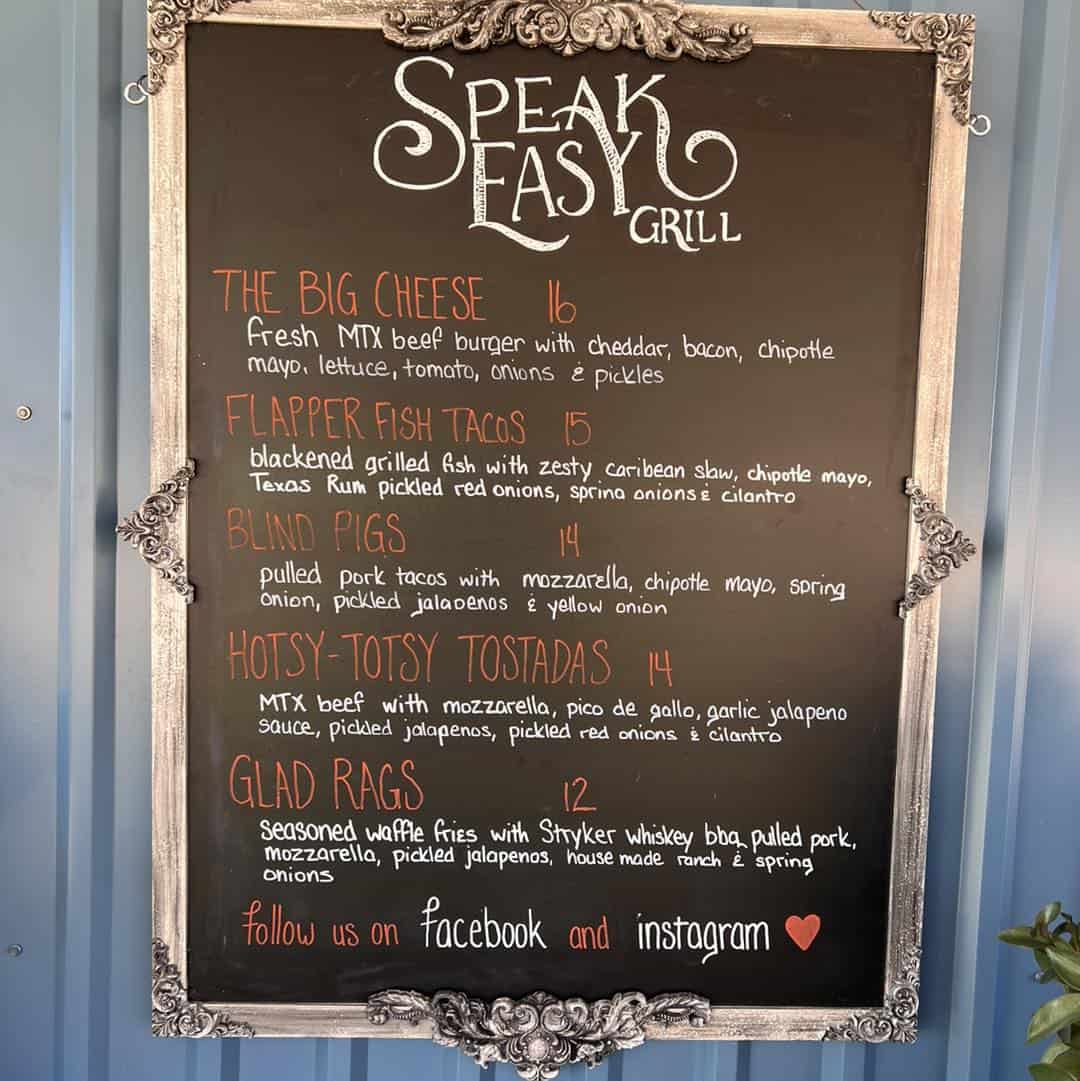 SPEAK
EASY
GRILL
THE BIG CHEESE 16
fresh MTX beef burger with cheddar, bacon, chipotle
mayo, lettuce, tomato, onions & pickles
FLAPPER FISH TACOS 15
blackened grilled fish with zesty caribean slaw, chipotle mayo,
Texas Rum pickled red onions, spring onions & cilantro
BLIND PIGS 14
pulled pork tacos with mozzarella, chipotle mayo, spring
onion, pickled jalapenos & yellow onion
HOTSY-TOTSY TOSTADAS 14
MTX beef with mozzarella, pico de gallo, garlic jalapeno
sauce, pickled jalapenos, pickled red onions & cilantro
GLAD RAGS 12
seasoned waffle fries with Stryker whiskey bbq pulled pork,
mozzarella, pickled jalapenos, house made ranch & spring
onions
follow us on facebook and instagram